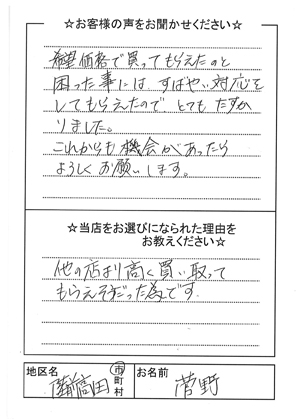 ☆お客様の声をお聞かせください☆
希望価格で買ってもらえたのと
困った事には すばやい対応を
してもらえたので とても たすか
りました。
これからも機会があったら
よろしくお願いします。
☆当店をお選びになられた理由を
お教えください☆
他の店より高く買い取って
もらえそうだった為です.
地区名
陸前高田
市
町
村
お名前
菅野